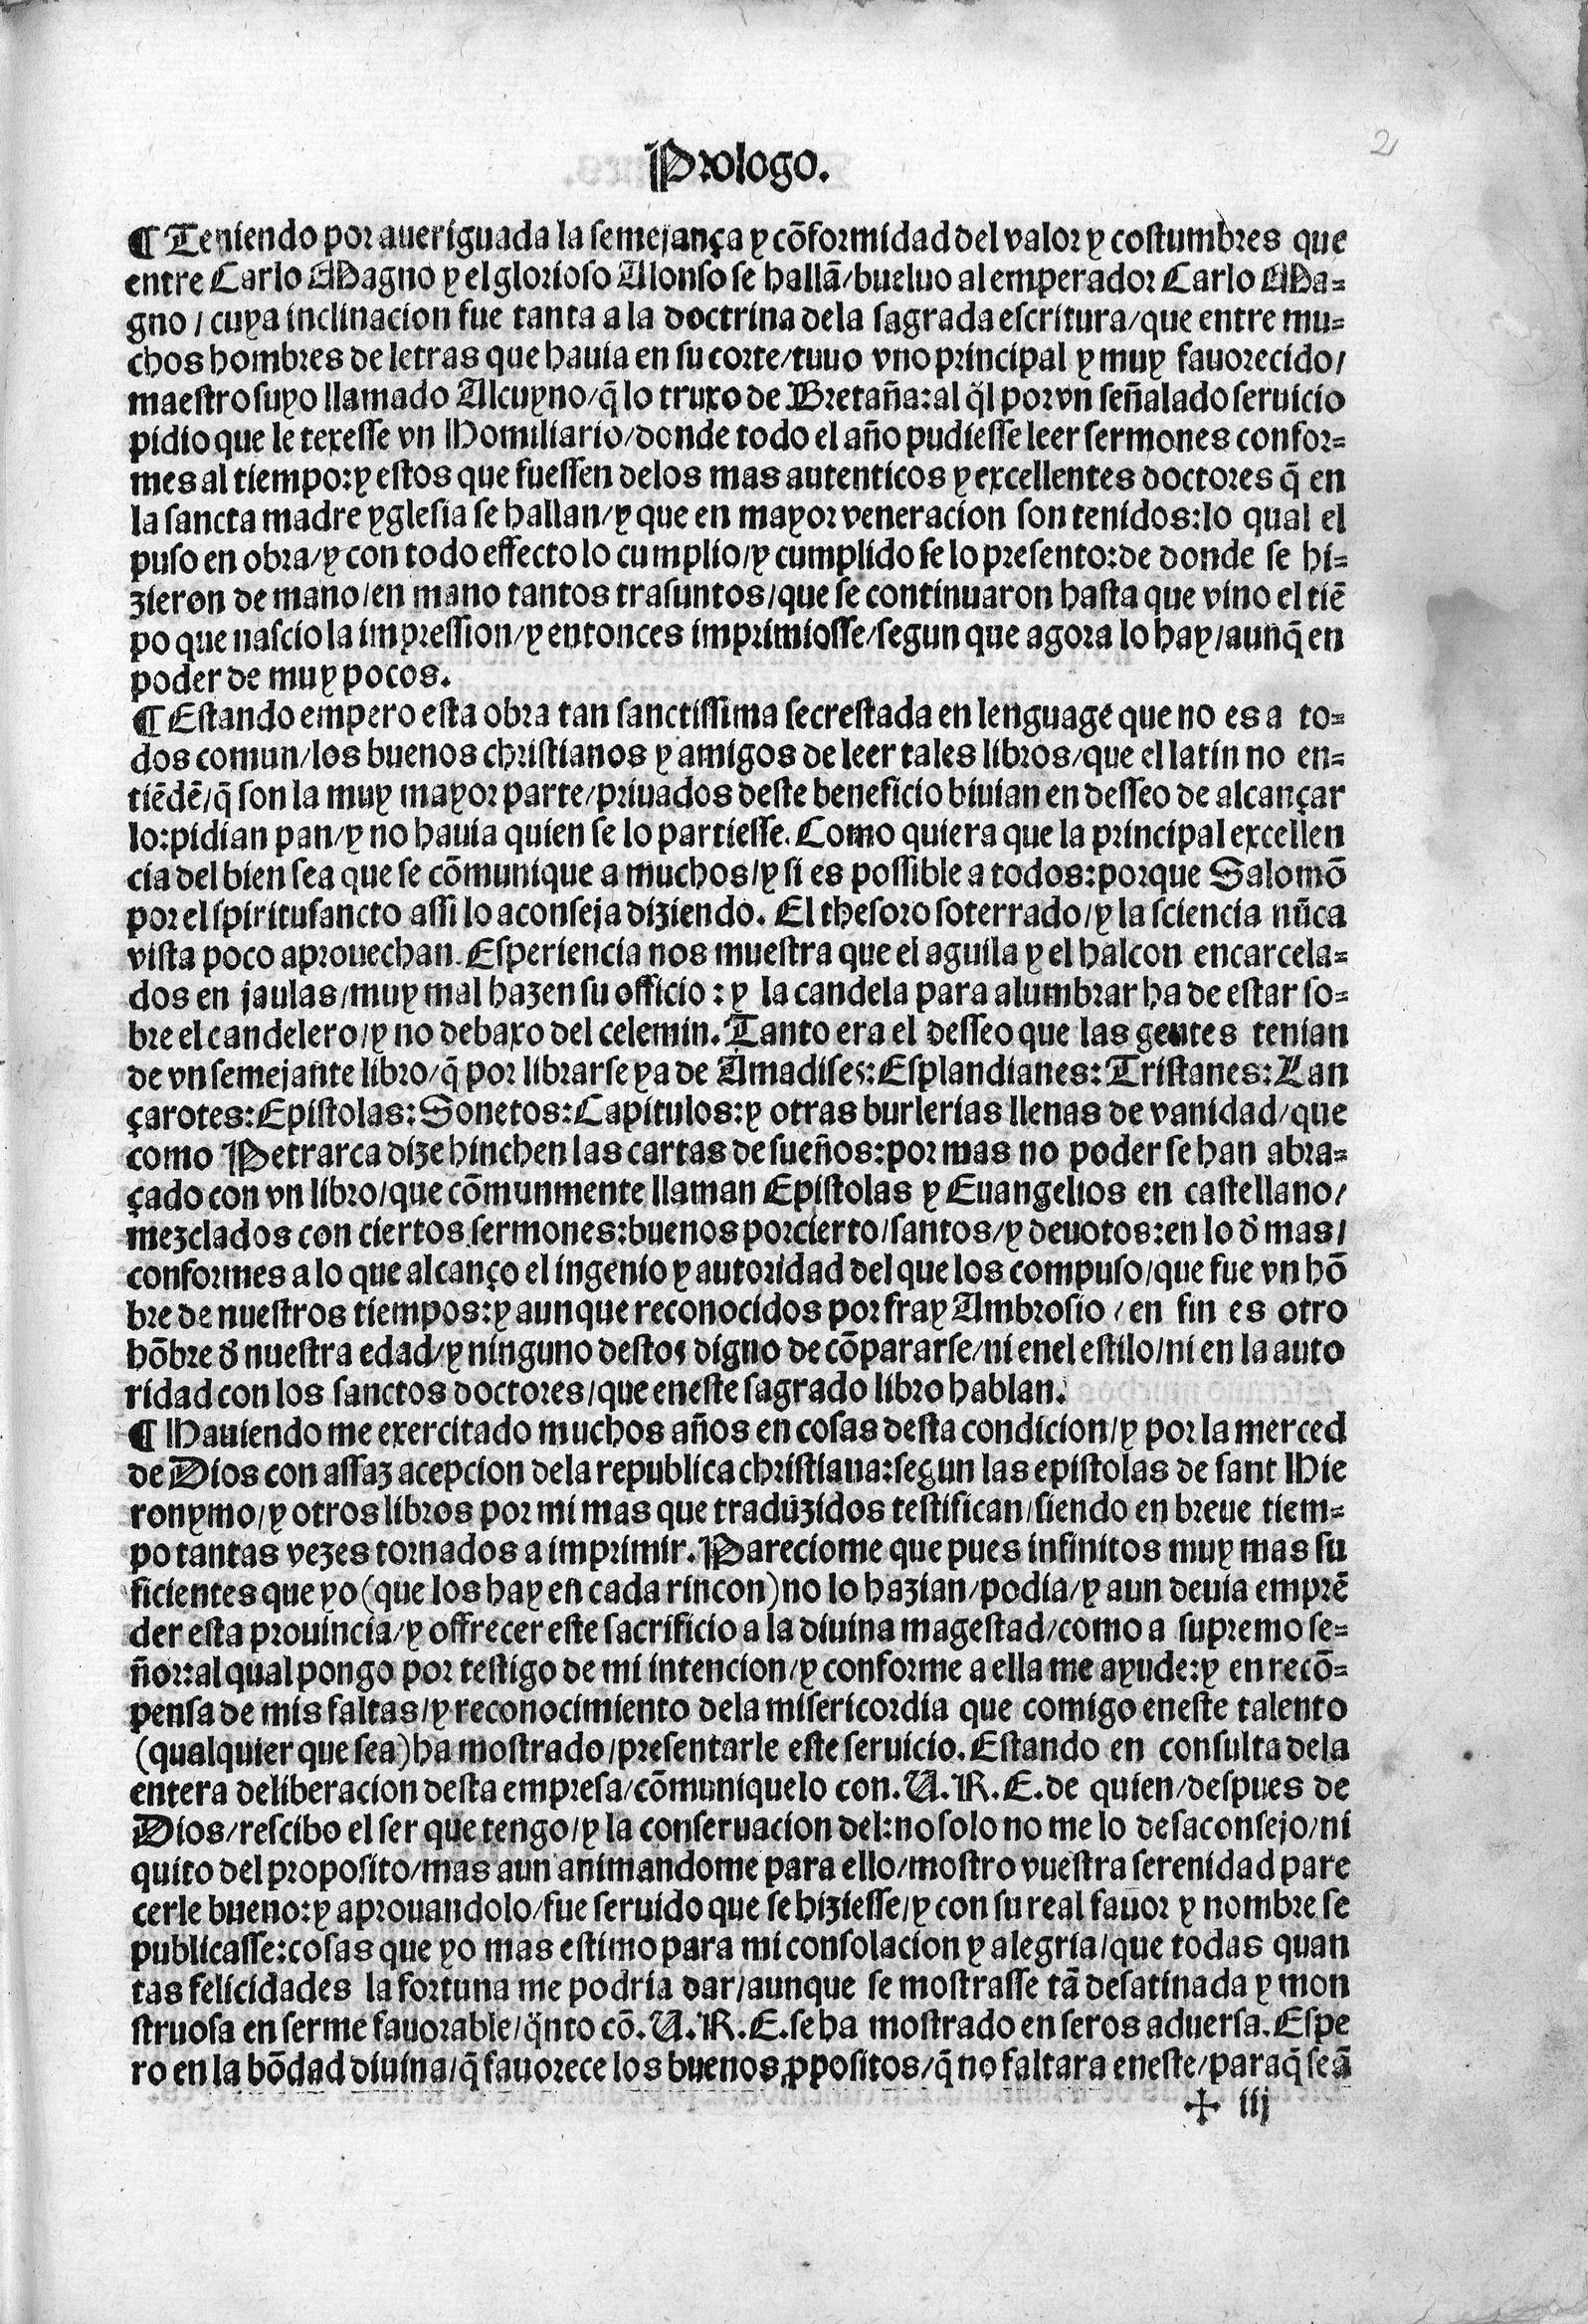 2
Prologo.
¶ Teniendo por aueriguada la semejança y cõformidad del valor y costumbres que
entre Carlo Magno y el glorioso Alonso se hallã/bueluo al emperador Carlo Ma-
gno/cuya inclinacion fue tanta a la doctrina dela sagrada escritura/que entre mu-
chos hombres de letras que hauia en su corte/tuuo vno principal y muy fauorecido/
maestro suyo llamado Alcuyno/q̃ lo truxo de Bretaña:al q̃l por vn señalado seruicio
pidio que le texesse vn Homiliario/donde todo el año pudiesse leer sermones confor-
mes al tiempo:y estos que fuessen delos mas autenticos y excellentes doctores q̃ en
la sancta madre yglesia se hallan/y que en mayor veneracion son tenidos:lo qual el
puso en obra/y con todo effecto lo cumplio/y cumplido se lo presento:de donde se hi-
zieron de mano/en mano tantos trasuntos/que se continuaron hasta que vino el tiẽ
po que nascio la impression/y entonces imprimiosse/segun que agora lo hay/aunq̃ en
poder de muy pocos.
¶ Estando empero esta obra tan sanctissima secrestada en lenguage que no es a to-
dos comun/los buenos christianos y amigos de leer tales libros/que el latin no en-
tiẽdẽ/q̃ son la muy mayor parte/priuados deste beneficio biuian en desseo de alcançar
lo:pidian pan/y no hauia quien se lo partiesse. Como quiera que la principal excellen
cia del bien sea que se cõmunique a muchos/y si es possible a todos:porque Salomõ
por el spiritusancto assi lo aconseja diziendo. El thesoro soterrado/y la sciencia nũca
vista poco aprouechan. Esperiencia nos muestra que el aguila y el halcon encarcela-
dos en jaulas/muy mal hazen su officio:y la candela para alumbrar ha de estar so-
bre el candelero/y no debaxo del celemin. Tanto era el desseo que las gentes tenian
de vn semejante libro/q̃ por librarse ya de Amadises:Esplandianes:Tristanes:Lan
çarotes:Epistolas:Sonetos:Capitulos:y otras burlerias llenas de vanidad/que
como Petrarca dize hinchen las cartas de sueños:por mas no poder se han abra-
çado con vn libro/que cõmunmente llaman Epistolas y Euangelios en castellano/
mezclados con ciertos sermones:buenos porcierto/santos/y deuotos:en lo d̃ mas/
conformes a lo que alcanço el ingenio y autoridad del que los compuso/que fue vn hõ
bre de nuestros tiempos:y aunque reconocidos por fray Ambrosio/en fin es otro
hõbre d̃ nuestra edad/y ninguno destos digno de cõpararse/ni enel estilo/ni en la auto
ridad con los sanctos doctores/que eneste sagrado libro hablan.
¶ Hauiendo me exercitado muchos años en cosas desta condicion/y por la merced
de Dios con assaz acepcion dela republica christiana:segun las epistolas de sant Hie
ronymo/y otros libros por mi mas que traduzidos testifican/siendo en breue tiem-
po tantas vezes tornados a imprimir. Pareciome que pues infinitos muy mas su
ficientes que yo (que los hay en cada rincon) no lo hazian/podia/y aun deuia emprẽ
der esta prouincia/y offrecer este sacrificio a la diuina magestad/como a supremo se-
ñor:al qual pongo por testigo de mi intencion/y conforme a ella me ayude:y en recõ-
pensa de mis faltas/y reconocimiento dela misericordia que comigo eneste talento
(qualquier que sea) ha mostrado/presentarle este seruicio. Estando en consulta dela
entera deliberacion desta empresa/cõmuniquelo con. V. R. E. de quien/despues de
Dios/rescibo el ser que tengo/y la conseruacion del:no solo no me lo desaconsejo/ni
quito del proposito/mas aun animandome para ello/mostro vuestra serenidad pare
cerle bueno:y aprouandolo/fue seruido que se hiziesse/y con su real fauor y nombre se
publicasse:cosas que yo mas estimo para mi consolacion y alegria/que todas quan
tas felicidades la fortuna me podria dar/aunque se mostrasse tã desatinada y mon
struosa en serme fauorable/q̃nto cõ. V. R. E. se ha mostrado en seros aduersa. Espe
ro en la bõdad diuina/q̃ fauorece los buenos ꝓpositos/q̃ no faltara eneste/paraq̃ seã
✠ iij